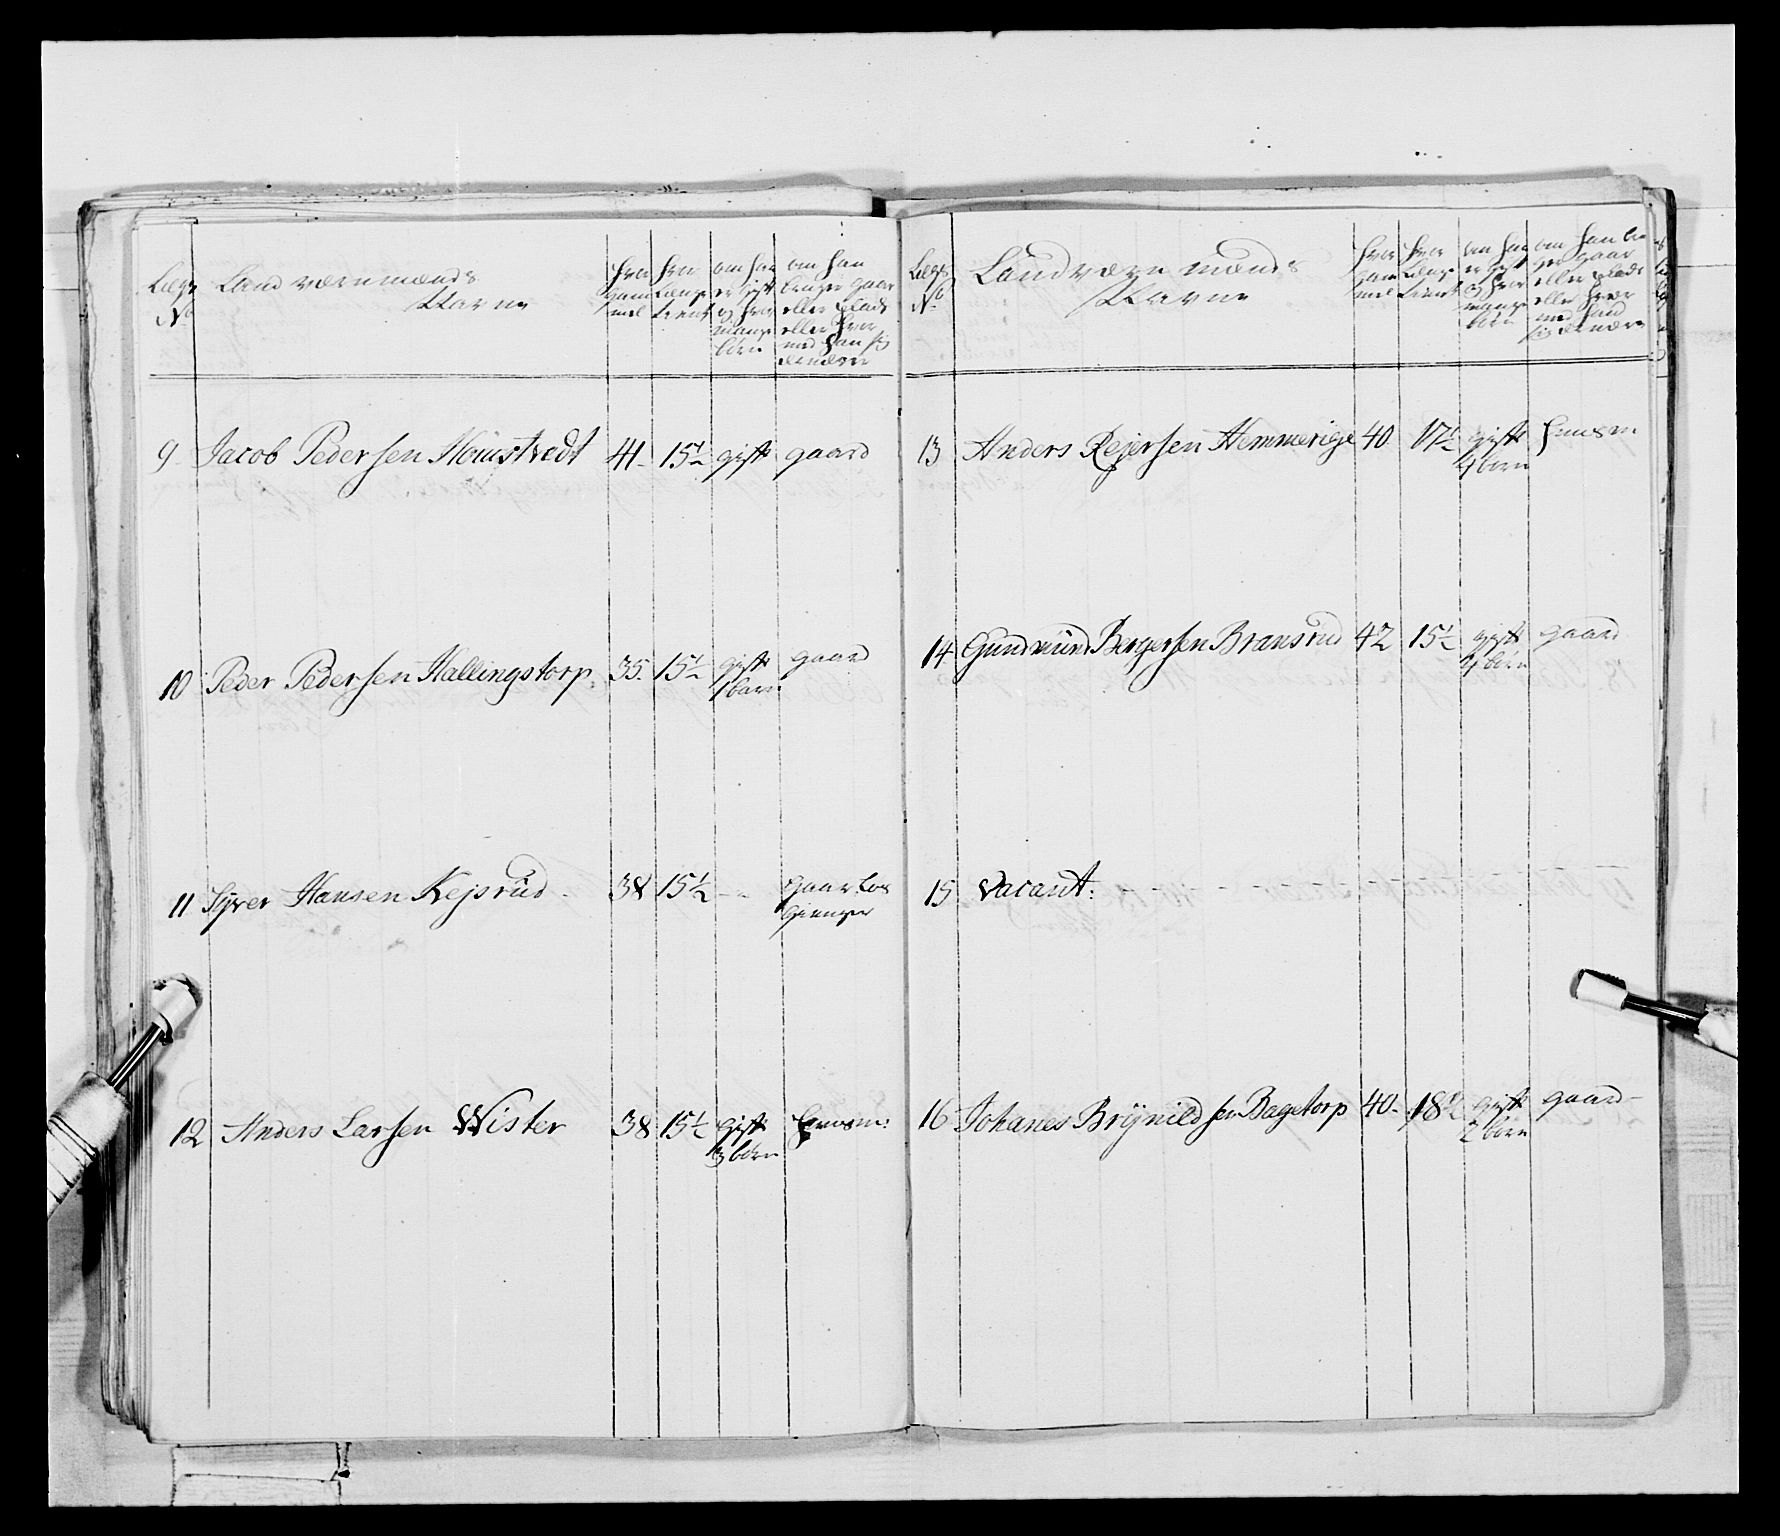 Lægs No
Land værnmænds Navne
hvor gammel
hvor længe tient
om han er gift og hvor mange børn
om han bruger gaard eller Plads eller hvor med han sig ernærer
9 Jacob Pedersen 41 15 1/2 gift gaard
10 Peder Pedersen Hallingstorp 35 15 1/2 gift 1 barn gaard
11 Syver Hansen Kejsrüd 38 15 1/2 - -
12 Anders Larsen Wister 38 15 1/2 gift 3 børn Huusm:
Lægs No
Landværn Mænds Navne
hvor gammel
hvor længe tient
om han er gift og hvor mange børn
om han bruger gaard eller Plads eller hvor med hand sig ernærer
13 Anders Rejersen Hemmerige 40 17 1/2 gift 4 børn Huusm
14 Gundmünd Bergersen Bransrud 42 15 1/2 gift børn gaard
15 Vacant:
16 Johanes Brÿnildsen Bagetorp 40 18 1/2 gift 2 børn gaard